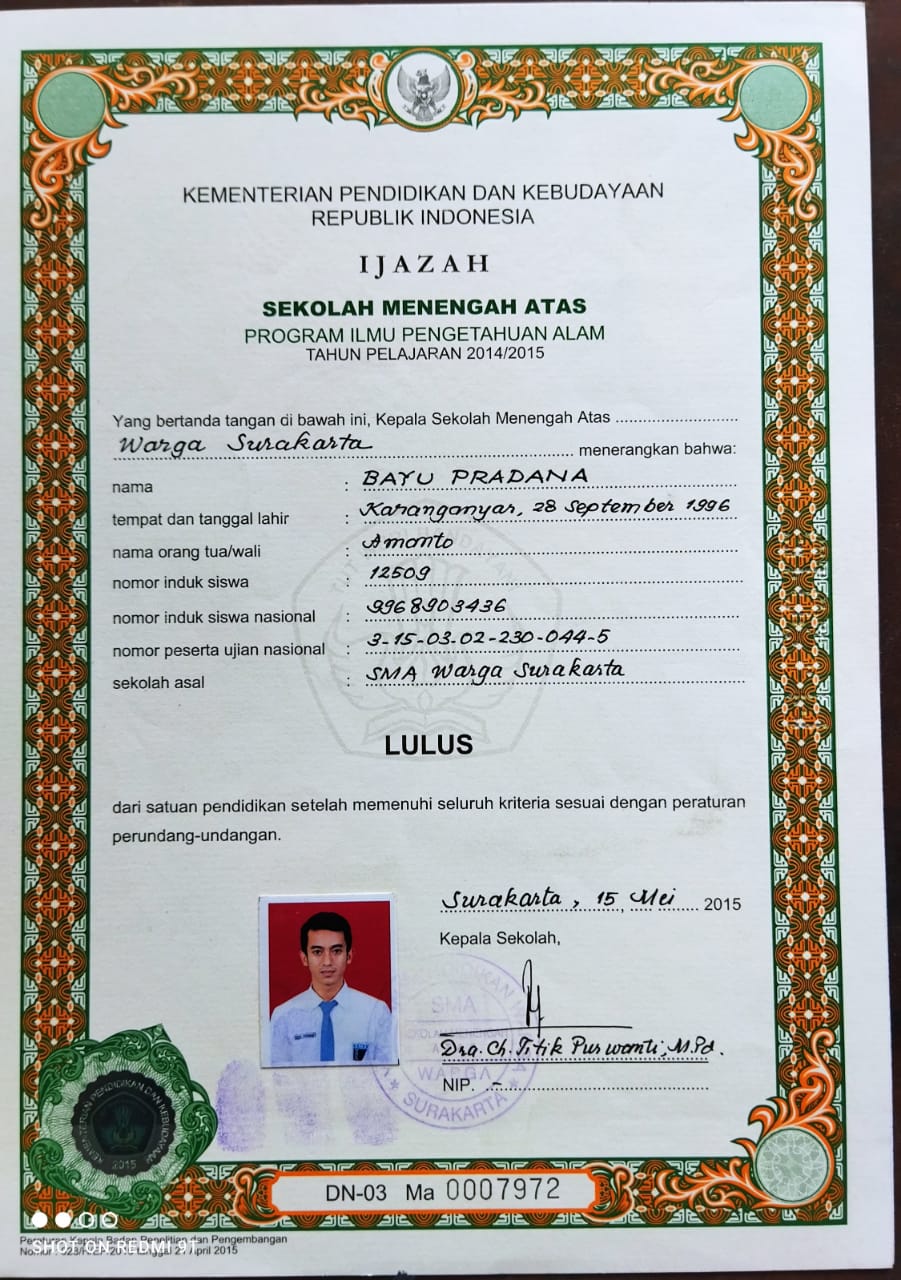 KEMENTERIAN PENDIDIKAN DAN KEBUDAYAAN
REPUBLIK INDONESIA
IJAZAH
SEKOLAH MENENGAH ATAS
PROGRAM ILMU PENGETAHUAN ALAM
TAHUN PELAJARAN 2014/2015
Yang bertanda tangan di bawah ini, Kepala Sekolah Menengah Atas
Warga Surakarta menerangkan bahwa:
nama : BAYU PRADANA
tempat dan tanggal lahir : Karanganyar, 28 September 1996
nama orang tua/wali : Amanto
nomor induk siswa : 12509
nomor induk siswa nasional : 9968903436
nomor peserta ujian nasional : 3-15-03-02-230-044-5
sekolah asal : SMA Warga Surakarta
LULUS
dari satuan pendidikan setelah memenuhi seluruh kriteria sesuai dengan peraturan
perundang-undangan.
Surakarta, 15, Mei 2015
Kepala Sekolah,
SMA
WARGA
SURAKARTA
Dra. Ch. Titik Purwanti, M.Pd.
NIP. -
KEMENTERIAN PENDIDIKAN DAN KEBUDAYAAN
2015
DN-03 Ma 0007972
Peraturan Kepala Badan Penelitian dan Pengembangan
Nomor : April 2015
SHOT ON REDMI 9T